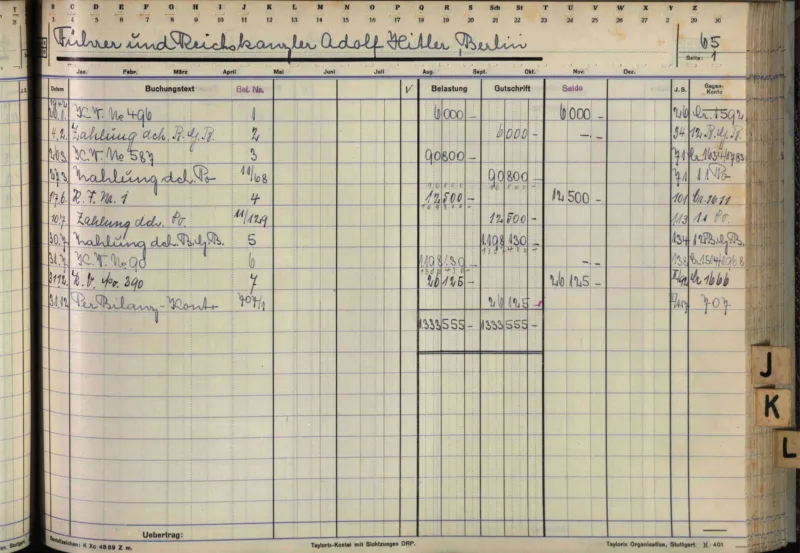 S C D E F G H I J K L M N O P Q R S Sch St T U V W X Y Z
3 4 5 6 7 8 9 10 11 12 13 14 15 16 17 18 19 20 21 22 23 24 25 26 27 28 29 30
Führer und Reichskanzler Adolf Hitler, Berlin
65
Seite: 1
Jan. Febr. März April Mai Juni Juli Aug. Sept. Okt. Nov. Dez.
Datum Buchungstext Bel. No. V Belastung Gutschrift Saldo J.S. Gegen-Konto
K.V. No 496 1 6000 – 6000 – 26 1592
4.2. Zahlung dch. B.g.B. 2 6000 – –.– 34 12 B.g.B.
20.3. K.V. No 587 3 90800 – 71
27.3. Zahlung dch. Po 11/68 90800 – 71 11 Po
17.6. No. 1 4 12500 – 12500 – 101 1611
10.7. Zahlung dch. Po. 11/129 12500 – 113 11 Po.
30.7. Zahlung dch. B.g.B. 5 1198130 – 134 12 B.g.B.
31.7. K.V. No 90 6 1198130 – –.– 138
31.12. K.V. No. 390 7 26125 – 26125 – 1666
31.12. Per Bilanz-Konto 707/1 26125 – 707
1333555 – 1333555 –
J
K
L
Uebertrag:
Bestellzeichen: R Xc 4589 Z m. Taylorix-Kontei mit Sichtzungen DRP. Taylorix Organisation, Stuttgart. 401